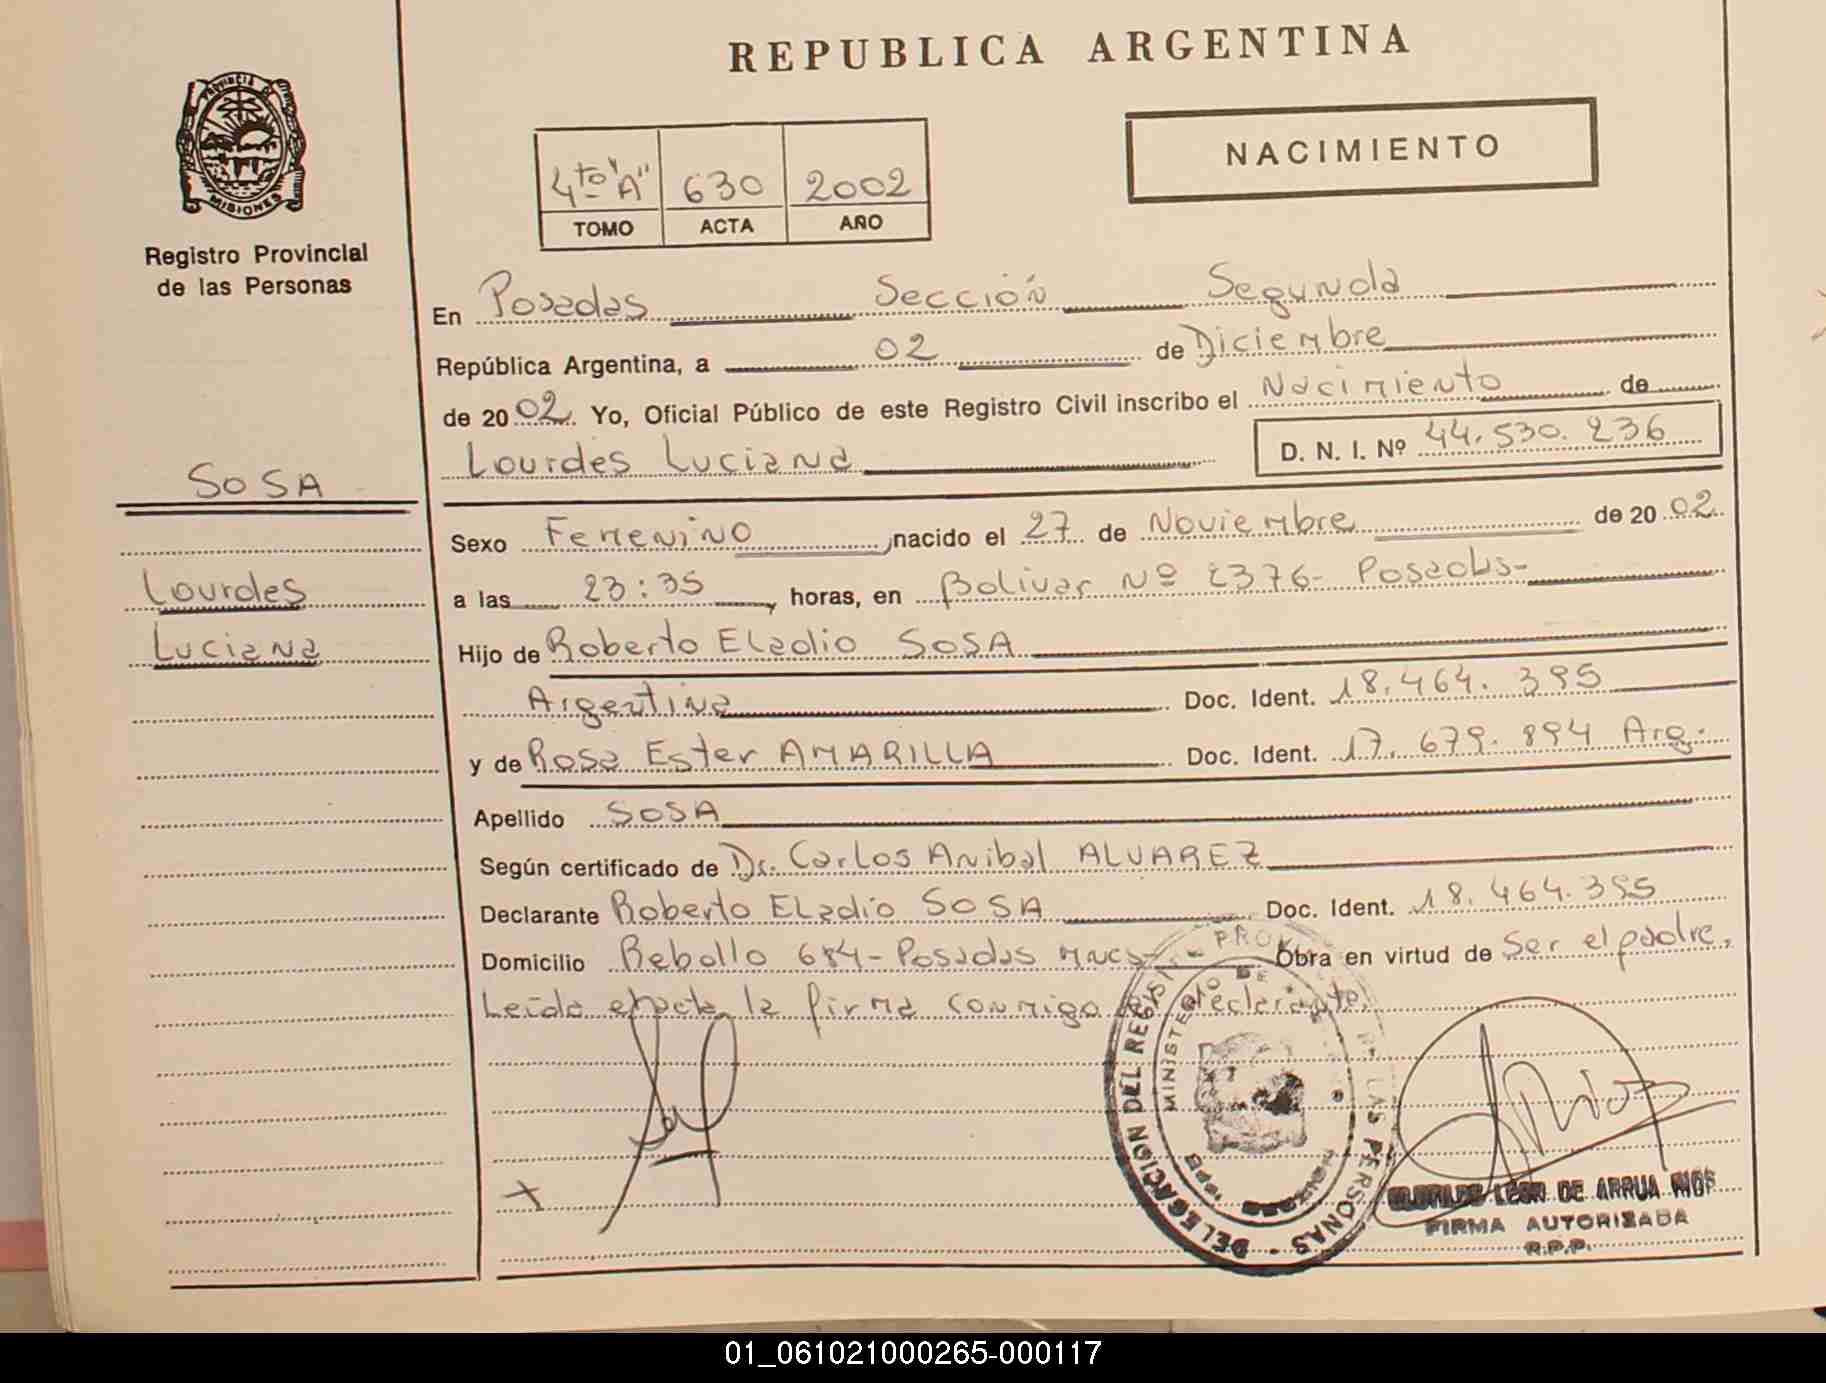 REPUBLICA ARGENTINA
PROVINCIA DE
MISIONES
Registro Provincial
de las Personas
4to "A" 630 2002
TOMO ACTA AÑO
NACIMIENTO
SOSA
Lourdes
Luciana
En Posadas Sección Segunda
República Argentina, a 02 de Diciembre
de 2002 Yo, Oficial Público de este Registro Civil inscribo el Nacimiento de
Lourdes Luciana D. N. I. Nº 44.530.236
Sexo Femenino, nacido el 27 de Noviembre de 2002
a las 23:35, horas, en Bolivar Nº 2376- Posadas-
Hijo de Roberto Eladio SOSA
Argentina Doc. Ident. 18.464.395
y de Rosa Ester AMARILLA Doc. Ident. 17.679.894 Arg.
Apellido SOSA
Según certificado de Dr. Carlos Anibal ALVAREZ
Declarante Roberto Eladio SOSA Doc. Ident. 18.464.395
Domicilio Rebollo 684-Posadas Mnes Obra en virtud de Ser el padre,
Leída el acta la firma conmigo el declarante.
DELEGACION DEL REGIST PRO LAS PERSONAS
MINISTERIO DE
X
LEON DE ARRUA RIOS
FIRMA AUTORIZADA
R.P.P.
01_061021000265-000117